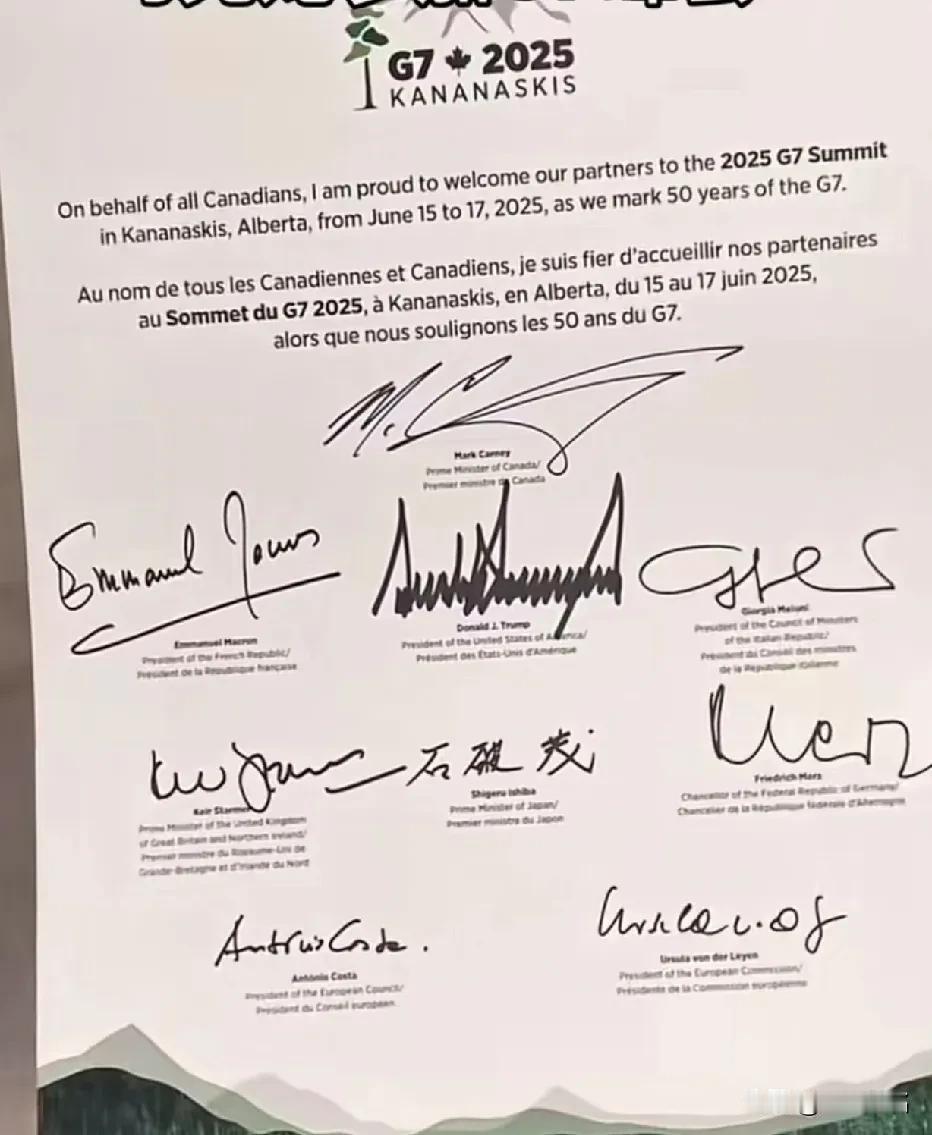 G7 2025
KANANASKIS
On behalf of all Canadians, I am proud to welcome our partners to the 2025 G7 Summit
in Kananaskis, Alberta, from June 15 to 17, 2025, as we mark 50 years of the G7.
Au nom de tous les Canadiennes et Canadiens, je suis fier d'accueillir nos partenaires
au Sommet du G7 2025, à Kananaskis, en Alberta, du 15 au 17 juin 2025,
alors que nous soulignons les 50 ans du G7.
M. C
Mark Carney
Prime Minister of Canada/
Premier ministre du Canada
Emmanuel
Emmanuel Macron
President of the French Republic/
Président de la République française
Donald J. Trump
President of the United States of America/
Président des États-Unis d'Amérique
Giorgia Meloni
President of the Council of Ministers
of the Italian Republic/
Président du Conseil des ministres
de la République italienne
Keir Starmer
Prime Minister of the United Kingdom
of Great Britain and Northern Ireland/
Premier ministre du Royaume-Uni de
Grande-Bretagne et d'Irlande du Nord
石破茂
Shigeru Ishiba
Prime Minister of Japan/
Premier ministre du Japon
Merz
Friedrich Merz
Chancellor of the Federal Republic of Germany/
Chancelier de la République fédérale d'Allemagne
António Costa
António Costa
President of the European Council/
Président du Conseil européen
Ursula von der Leyen
President of the European Commission/
Présidente de la Commission européenne